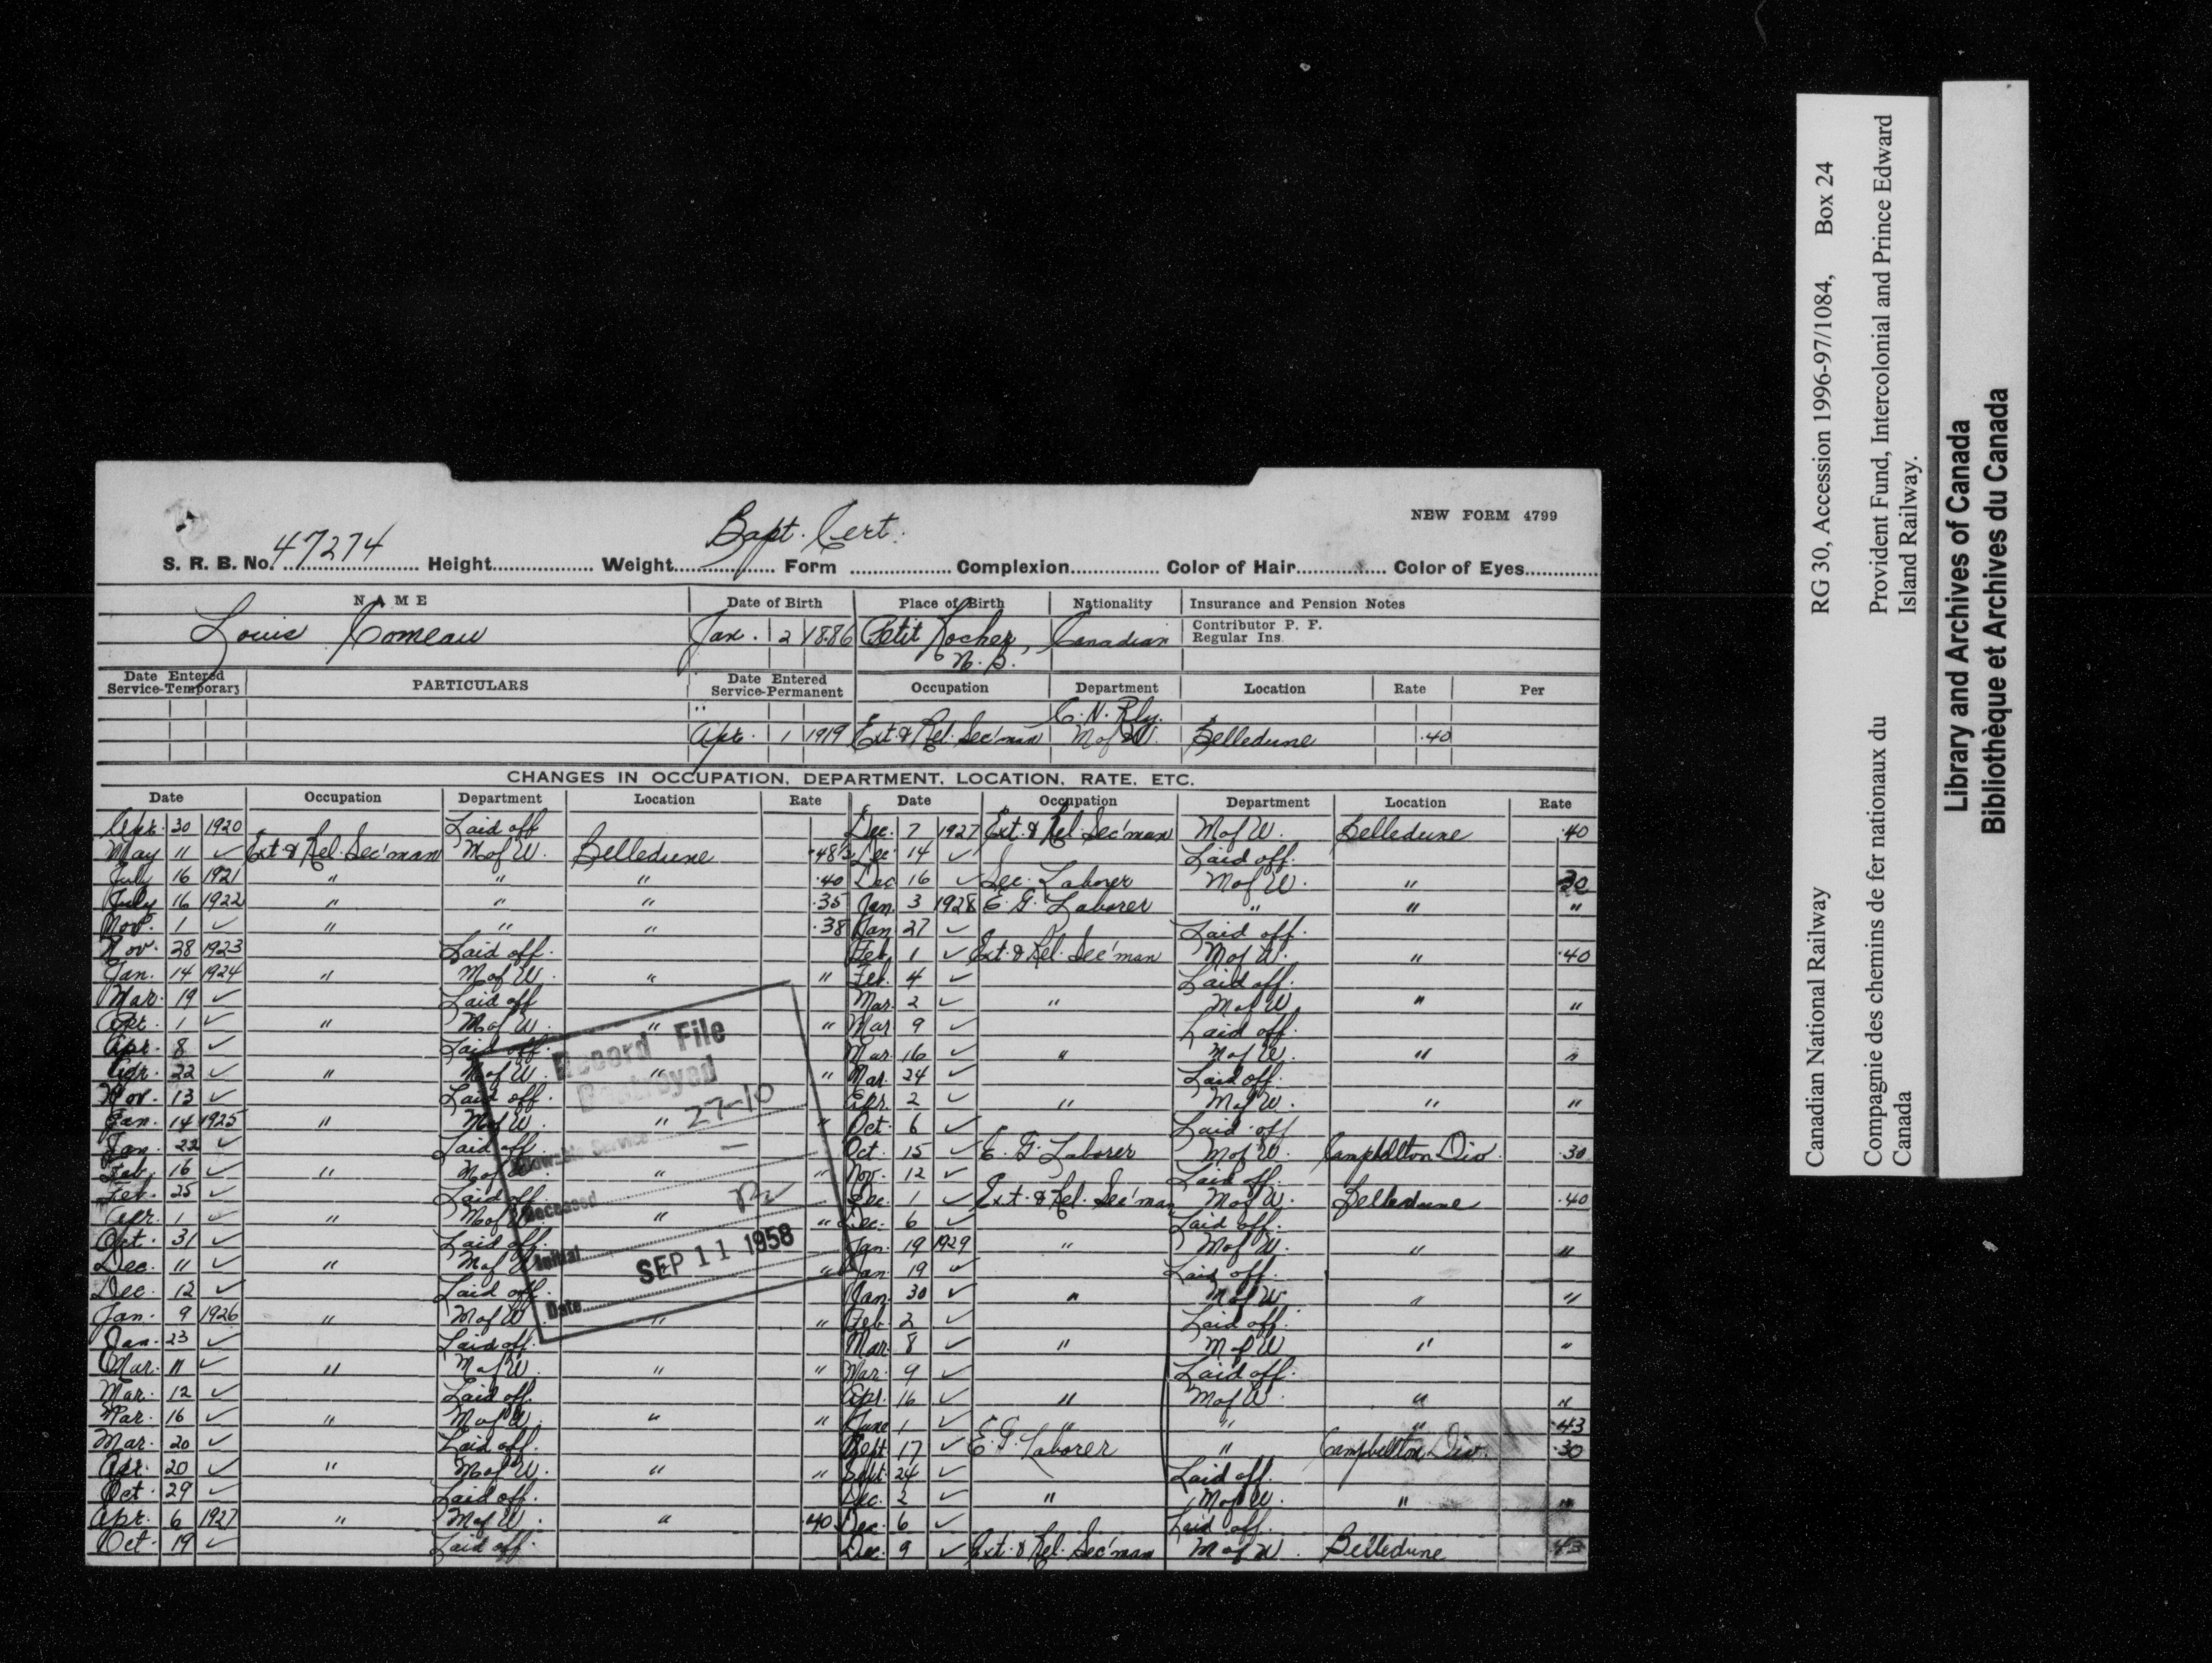 Bapt. Cert.
NEW FORM 4799
S. R. B. No. 47274 Height Weight Form Complexion Color of Hair Color of Eyes
NAME Date of Birth Place of Birth Nationality Insurance and Pension Notes
Louis Comeau Jan. 2 1886 Petit Rocher, N.B. Canadian Contributor P. F.
Regular Ins.
Date Entered Service-Temporary PARTICULARS Date Entered Service-Permanent Occupation Department Location Rate Per
C. N. Rly.
Apr. 1 1919 Ext. & Rel. Sec'man M of W. Belledune .40
CHANGES IN OCCUPATION, DEPARTMENT, LOCATION, RATE, ETC.
Date Occupation Department Location Rate
30 1920 Laid off
May 11 ✓ Ext & Rel. Sec'man M of W. Belledune .48½
July 16 1921 " " " .40
July 16 1922 " " " .35
Nov. 1 ✓ " " " .38
Nov. 28 1923 Laid off.
Jan. 14 1924 " M of W. " "
Mar. 19 ✓ Laid off
Apr. 1 ✓ " M of W. " "
Apr. 8 ✓ Laid off.
Apr. 22 ✓ " M of W. " "
Nov. 13 ✓ Laid off.
Jan. 14 1925 " M of W. " "
Jan. 22 ✓ Laid off.
Feb. 16 ✓ " M of W. " "
Feb. 25 ✓ Laid off.
Apr. 1 ✓ " M of W. " "
Oct. 31 ✓ Laid off.
Dec. 11 ✓ " M of W. " "
Dec. 12 ✓ Laid off.
Jan. 9 1926 " M of W. " "
Jan. 23 ✓ Laid off.
Mar. 11 ✓ " M of W. " "
Mar. 12 ✓ Laid off.
Mar. 16 ✓ " M of W. " "
Mar. 20 ✓ Laid off.
Apr. 20 ✓ " M of W. " "
Oct. 29 ✓ Laid off.
Apr. 6 1927 " M of W. " .40
Oct. 19 ✓ Laid off.
Date Occupation Department Location Rate
Dec. 7 1927 Ext. & Rel. Sec'man M of W. Belledune .40
Dec 14 ✓ Laid off.
Dec 16 ✓ Sec. Laborer M of W. " 30
Jan. 3 1928 E. G. Laborer " " "
Jan 27 ✓ Laid off.
Feb. 1 ✓ Ext. & Rel. Sec'man M of W. " .40
Feb. 4 ✓ Laid off.
Mar. 2 ✓ " M of W " "
Mar 9 ✓ Laid off.
Mar. 16 ✓ " M of W. " "
Mar. 24 ✓ Laid off.
Apr. 2 ✓ " M of W. " "
Oct. 6 ✓ Laid off
Oct. 15 ✓ E. G. Laborer M of W. Campbellton Div. .30
Nov. 12 ✓ Laid off.
Dec. 1 ✓ Ext. & Rel. Sec'man M of W. Belledune .40
Dec. 6 ✓ Laid off.
Jan. 19 1929 " M of W. " "
Jan 19 ✓ Laid off.
Jan. 30 ✓ " M of W " "
Feb. 2 ✓ Laid off.
Mar. 8 ✓ " M of W " "
Mar. 9 ✓ Laid off.
Apr. 16 ✓ " M of W. " "
June 1 ✓ " " " .43
Sept 17 ✓ E. G. Laborer " Campbellton Div. .30
Sept. 24 ✓ Laid off.
Dec. 2 ✓ " M of W. " "
Dec. 6 ✓ Laid off.
Dec. 9 ✓ Ext. & Rel. Sec'man M of W. Belledune .43
Record File
Destroyed
27-10
Allowable Service
Deceased
Initial
SEP 11 1958
Date
Canadian National Railway RG 30, Accession 1996-97/1084, Box 24
Compagnie des chemins de fer nationaux du Canada
Provident Fund, Intercolonial and Prince Edward Island Railway.
Library and Archives of Canada
Bibliothèque et Archives du Canada